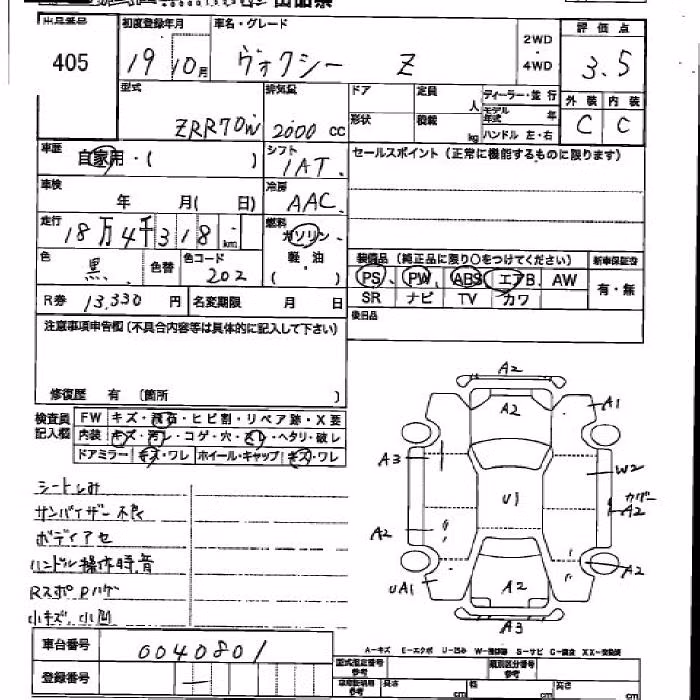 出品番号 初度登録年月 車名・グレード 2WD・4WD 評価点
405 19 10月 ヴォクシー Z 3.5
型式 排気量 ドア 定員 人 ディーラー・並行 外装 内装
ZRR70W 2000 CC 形状 積載 kg モデル年式 年 ハンドル 左・右 C C
車歴 自家用・( ) シフト 1AT セールスポイント(正常に機能するものに限ります)
車検 年 月( 日) 冷房 AAC
走行 18万4千318km 燃料 ガソリン・軽・油 ( )
色 黒 色替 色コード 202
装備品(純正品に限り○をつけてください) 新車保証書
PS、PW、ABS エアB、AW 有・無
SR ナビ TV カワ
R券 13,330円 名変期限 月 日
後日品
注意事項申告欄(不具合内容等は具体的に記入して下さい)
修復歴 有 (箇所 )
検査員記入欄 FW キズ・飛石・ヒビ割・リペア跡・X要
内装 キズ・汚レ・コゲ・穴・スレ・ヘタリ・破レ
ドアミラー キズ・ワレ ホイール・キャップ キズ・ワレ
A2
A2 A1
A3 W2
U1 カバー A2
A2
A2
UA1 A2
A3
シートしみ
サンバイザー不良
ボディアセ
ハンドル操作時音
RスポPハゲ
小キズ、小凹
車台番号 0040801
登録番号 —
A-キズ E-エクボ U-凹み W-補修跡 S-サビ C-腐食 XX-交換済
型式指定番号 参考 類別区分番号 参考
車庫証明用 参考 長さ cm 幅 cm 高さ cm